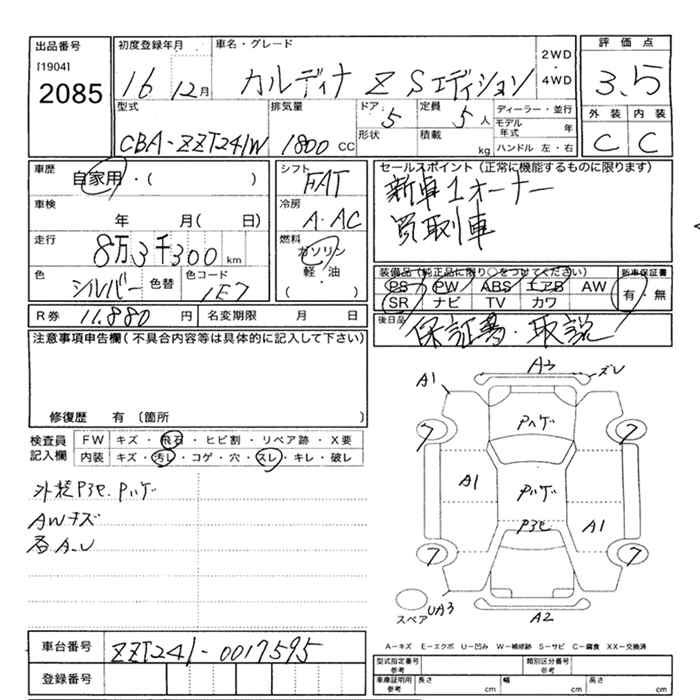 出品番号
[1904]
2085
初度登録年月
16年12月
車名・グレード
カルディナ Z Sエディション
2WD
・
4WD
評価点
3.5
外装 内装
C C
型式
CBA-ZZT241W
排気量
1800 CC
ドア
5
形状
定員
5人
積載
kg
ディーラー・並行
モデル年式 年
ハンドル 左・右
車歴
自家用・( )
車検
年 月( 日)
走行
8万3千300km
色
シルバー
色替
色コード
1E7
シフト
FAT
冷房
A・AC
燃料
ガソリン
軽・油
( )
セールスポイント(正常に機能するものに限ります)
新車1オーナー
買取車
装備品(純正品に限り○をつけてください)
新車保証書
PS PW ABS エアB AW
SR ナビ TV カワ
有・無
R券 11.880円
名変期限 月 日
後日品
保証書・取説
注意事項申告欄(不具合内容等は具体的に記入して下さい)
修復歴 有(箇所 )
検査員
記入欄
FW キズ・飛石・ヒビ割・リペア跡・X要
内装 キズ・汚レ・コゲ・穴・スレ・キレ・破レ
外装Pヨセ.Pハゲ
AWキズ
各A.U
A1
A3
ズレ
Pハゲ
7
7
A1
Pハゲ
Pヨセ
A1
7
7
スペア
UA3
A2
A-キズ E-エクボ U-凹み W-補修跡 S-サビ C-腐食 XX-交換済
車台番号
ZZT241-0017595
登録番号
型式指定番号
参考
類別区分番号
参考
車庫証明用
参考
長さ cm
幅 cm
高さ cm